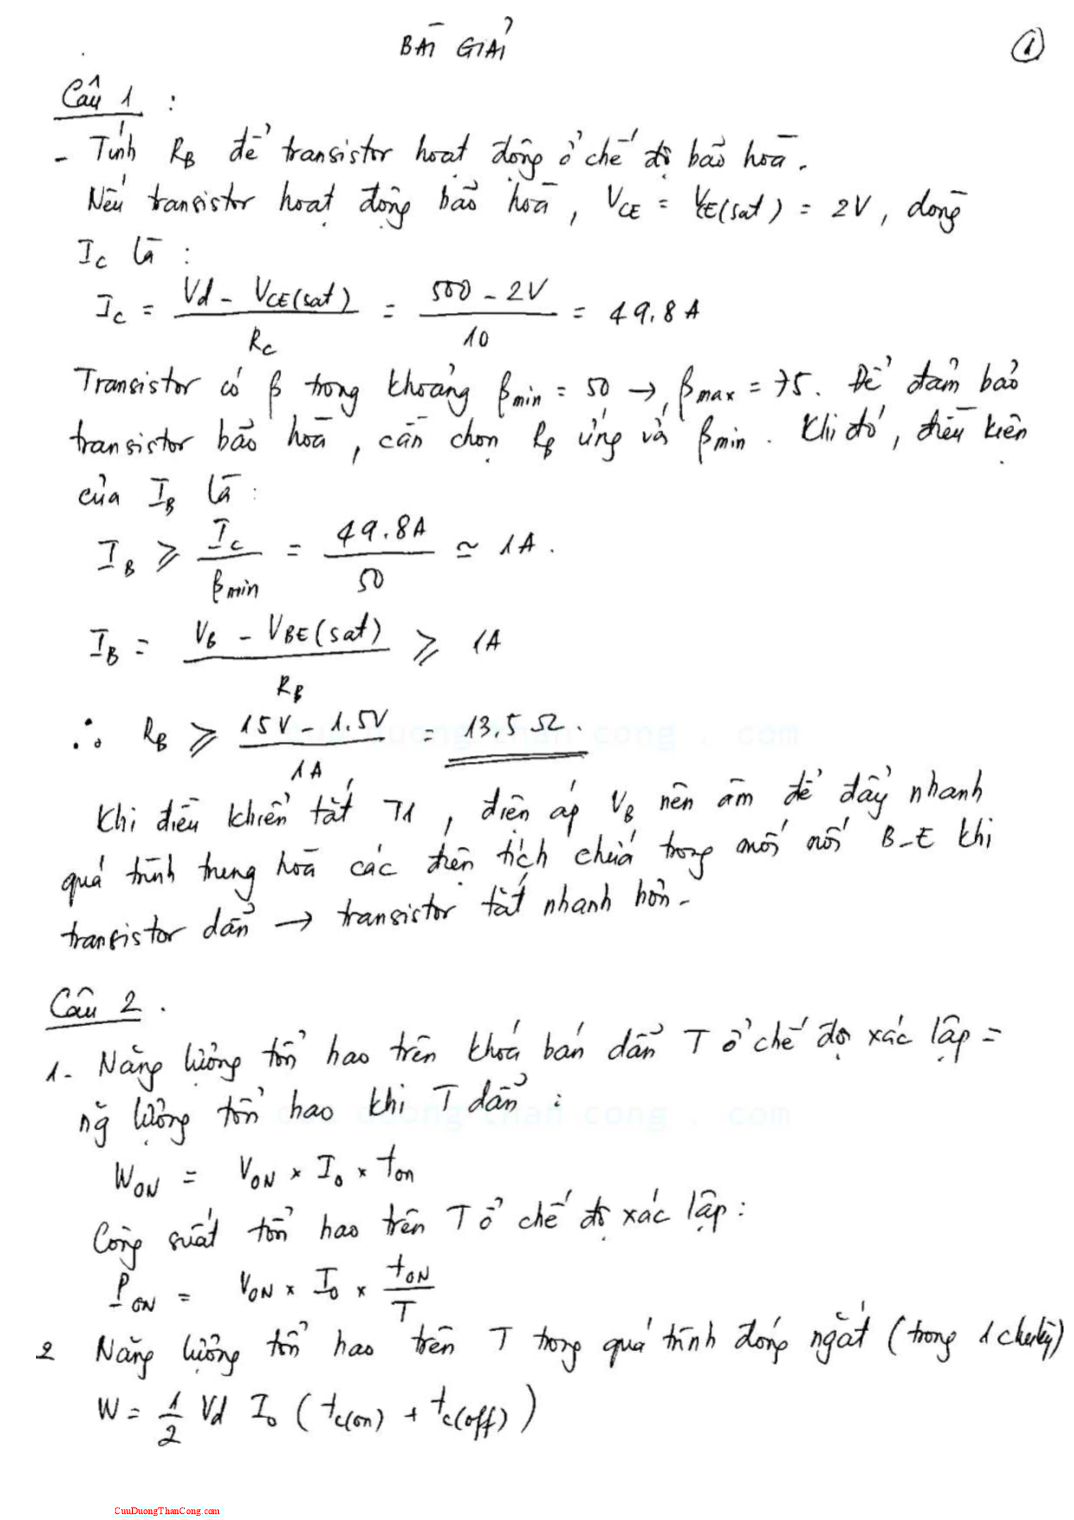 BÀI GIẢI
1
Câu 1 :
- Tính RB để transistor hoạt động ở chế độ bảo hoà.
Nếu transistor hoạt động bảo hoà, VCE = VCE(sat) = 2V, dòng
IC là :
IC = (Vd - VCE(sat)) / RC = (500 - 2V) / 10 = 49.8 A
Transistor có β trong khoảng βmin = 50 → βmax = 75. Để đảm bảo
transistor bảo hoà, cần chọn RB ứng với βmin. Khi đó, điều kiện
của IB là :
IB ≥ IC / βmin = 49.8A / 50 ≃ 1A.
IB = (VB - VBE(sat)) / RB ≥ 1A
∴ RB ≥ (15V - 1.5V) / 1A = 13.5 Ω.
cuu duong than cong . com
Khi điều khiển tắt T1, điện áp VB nên âm để đẩy nhanh
quá trình trung hoà các điện tích chứa trong mối nối B-E khi
transistor dẫn → transistor tắt nhanh hơn.
Câu 2 .
1. Năng lượng tổn hao trên khoá bán dẫn T ở chế độ xác lập =
ng lượng tổn hao khi T dẫn :
cuu duong than cong . com
WON = VON × I0 × ton
Công suất tổn hao trên T ở chế độ xác lập :
PON = VON × I0 × tON / T
2 Năng lượng tổn hao trên T trong quá trình đóng ngắt (trong 1 chu kỳ)
W = 1/2 Vd I0 (tc(on) + tc(off))
CuuDuongThanCong.com